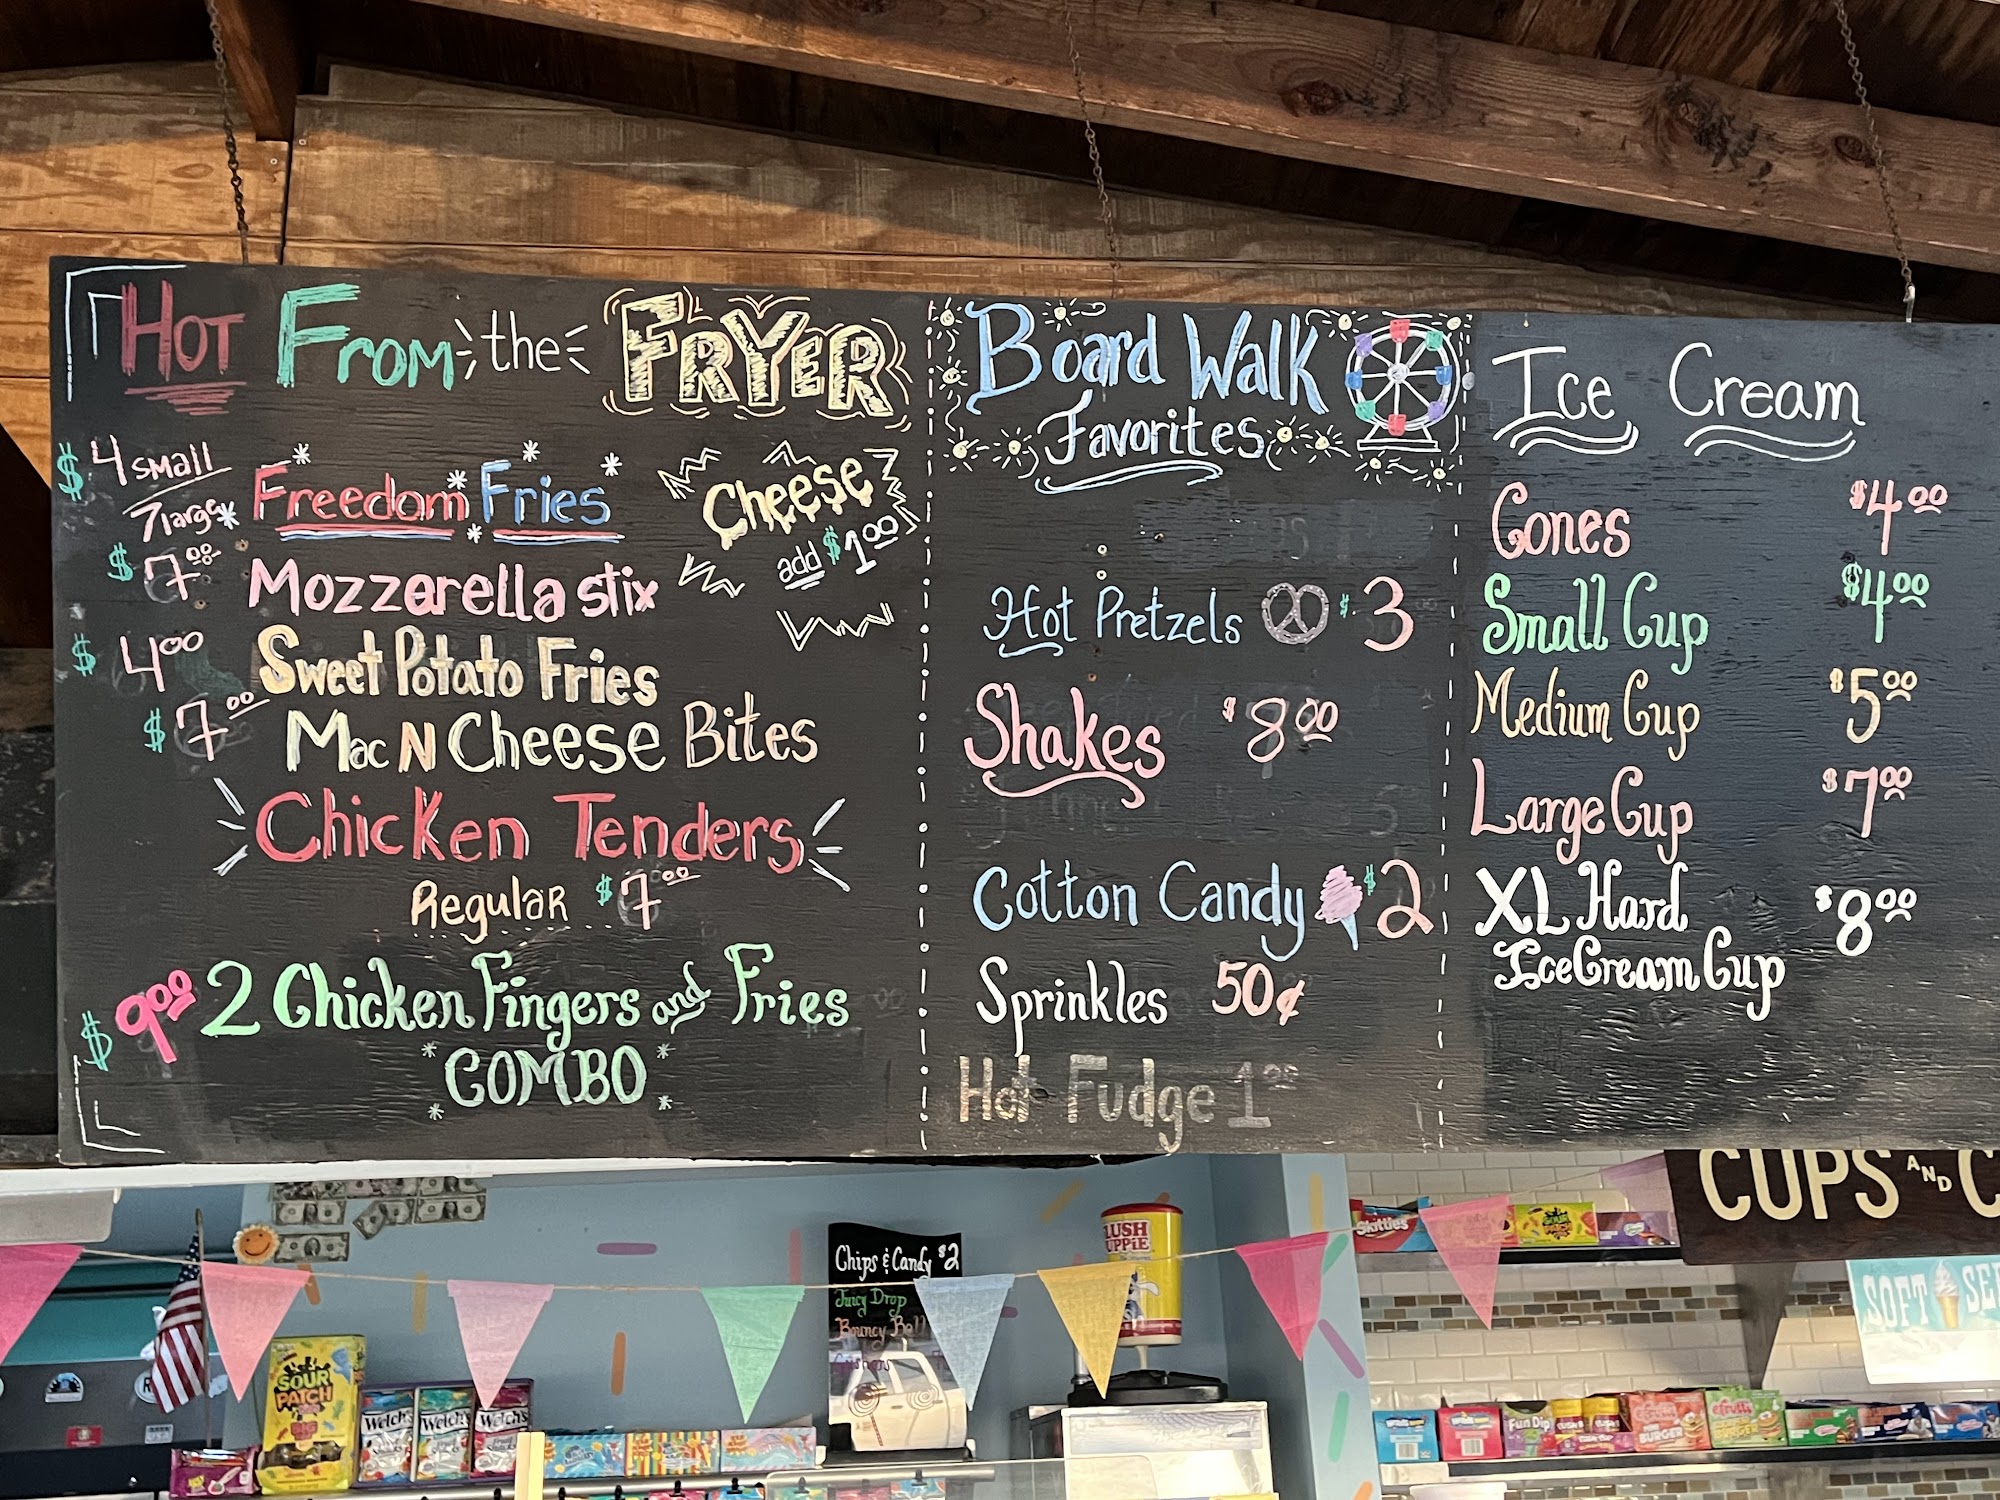 Hot From the Fryer
$ 4 small
7 large
Freedom Fries
Cheese
add $1.00
$ 7.00 Mozzarella Stix
$ 4.00 Sweet Potato Fries
$ 7.00 Mac N Cheese Bites
Chicken Tenders
Regular $7.00
$ 9.00 2 Chicken Fingers and Fries
COMBO
Board Walk
Favorites
Hot Pretzels $3
Shakes $8.00
Cotton Candy $2
Sprinkles 50¢
Hot Fudge 1.00
Ice Cream
Cones $4.00
Small Cup $4.00
Medium Cup $5.00
Large Cup $7.00
XL Hard $8.00
Ice Cream Cup
CUPS AND C
SOFT SE
Chips & Candy $2
Juicy Drop
Bouncy Ball
LUSH
UPPiE
Skittles
SOUR
PATCH
Welch's
Welch's
Welch's
Fun Dip
efrutti
BURGER